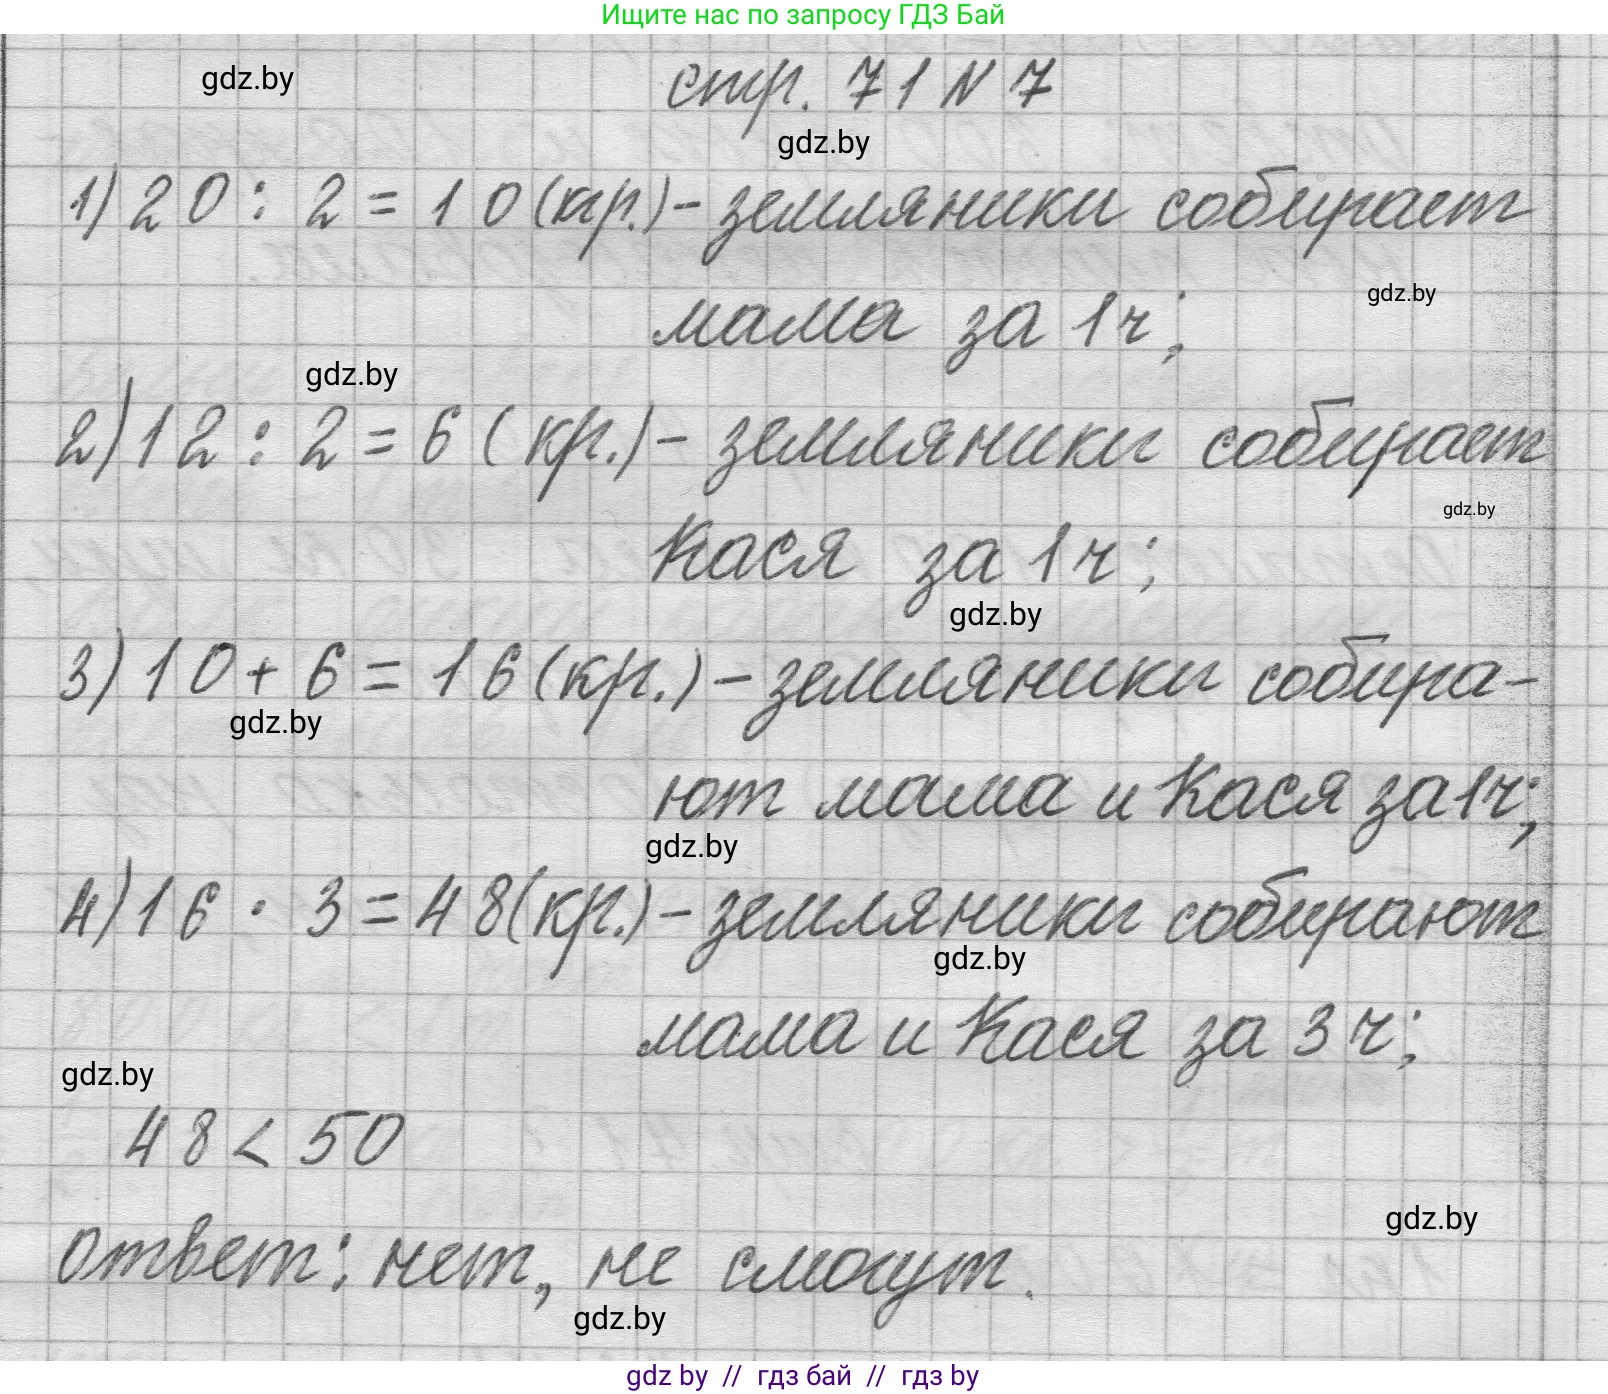 Ищите нас по запросу ГДЗ Бай
gdz.by
стр. 71 N 7
gdz.by
1) 20 : 2 = 10 (кр.) - земляники собирает
gdz.by
мама за 1 ч;
gdz.by
2) 12 : 2 = 6 (кр.) - земляники собирает
gdz.by
Кася за 1 ч;
gdz.by
3) 10 + 6 = 16 (кр.) - земляники собира-
gdz.by
ют мама и Кася за 1 ч;
gdz.by
4) 16 · 3 = 48 (кр.) - земляники собирают
gdz.by
мама и Кася за 3 ч;
gdz.by
48 < 50
gdz.by
ответ: нет, не смогут.
gdz.by
gdz by // гдз бай // гдз by